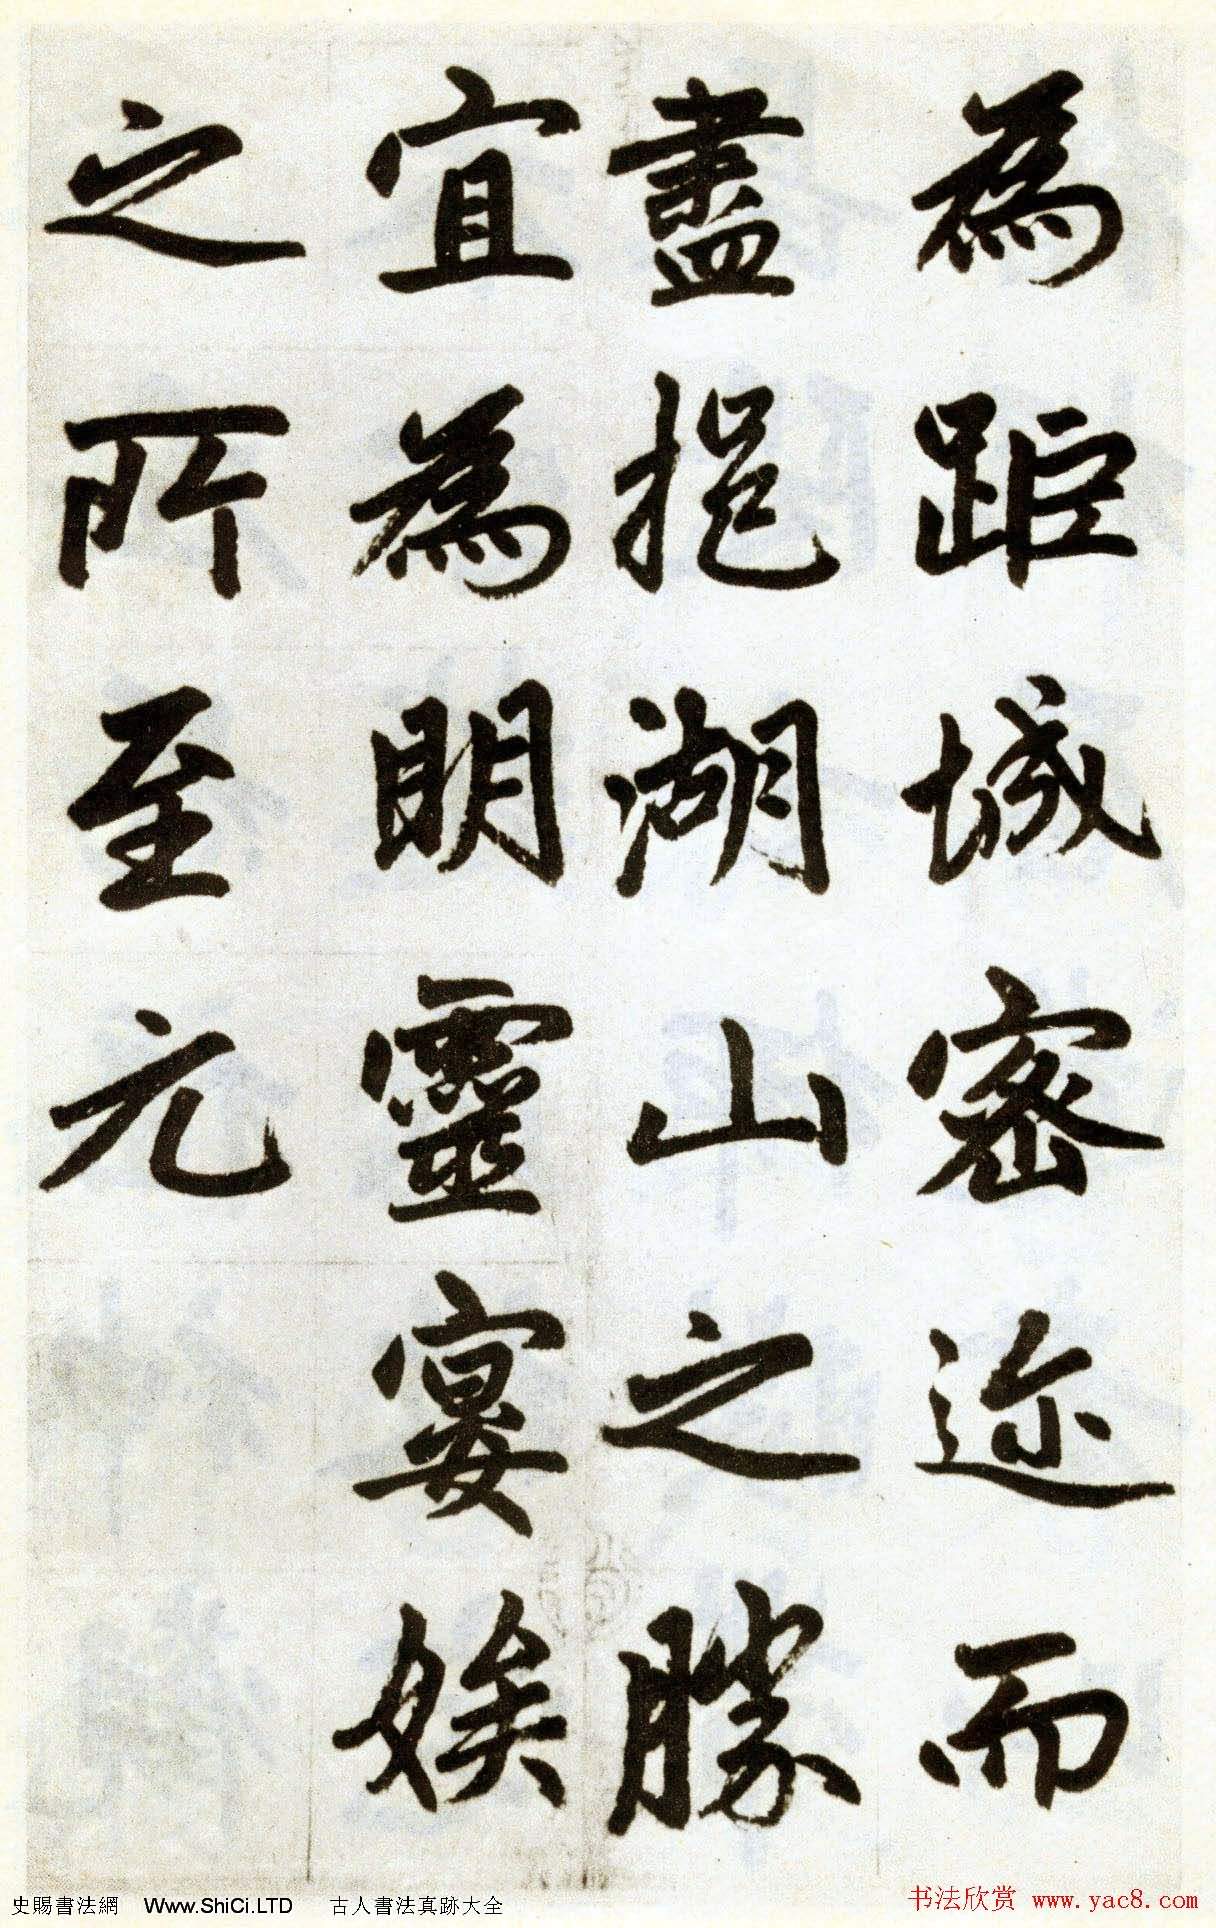 為距城密迩而
盡挹湖山之勝
宜為明靈宴娭
之所至元
史賜書法網 Www.ShiCi.LTD 古人書法真跡大全
书法欣赏 www.yac8.com